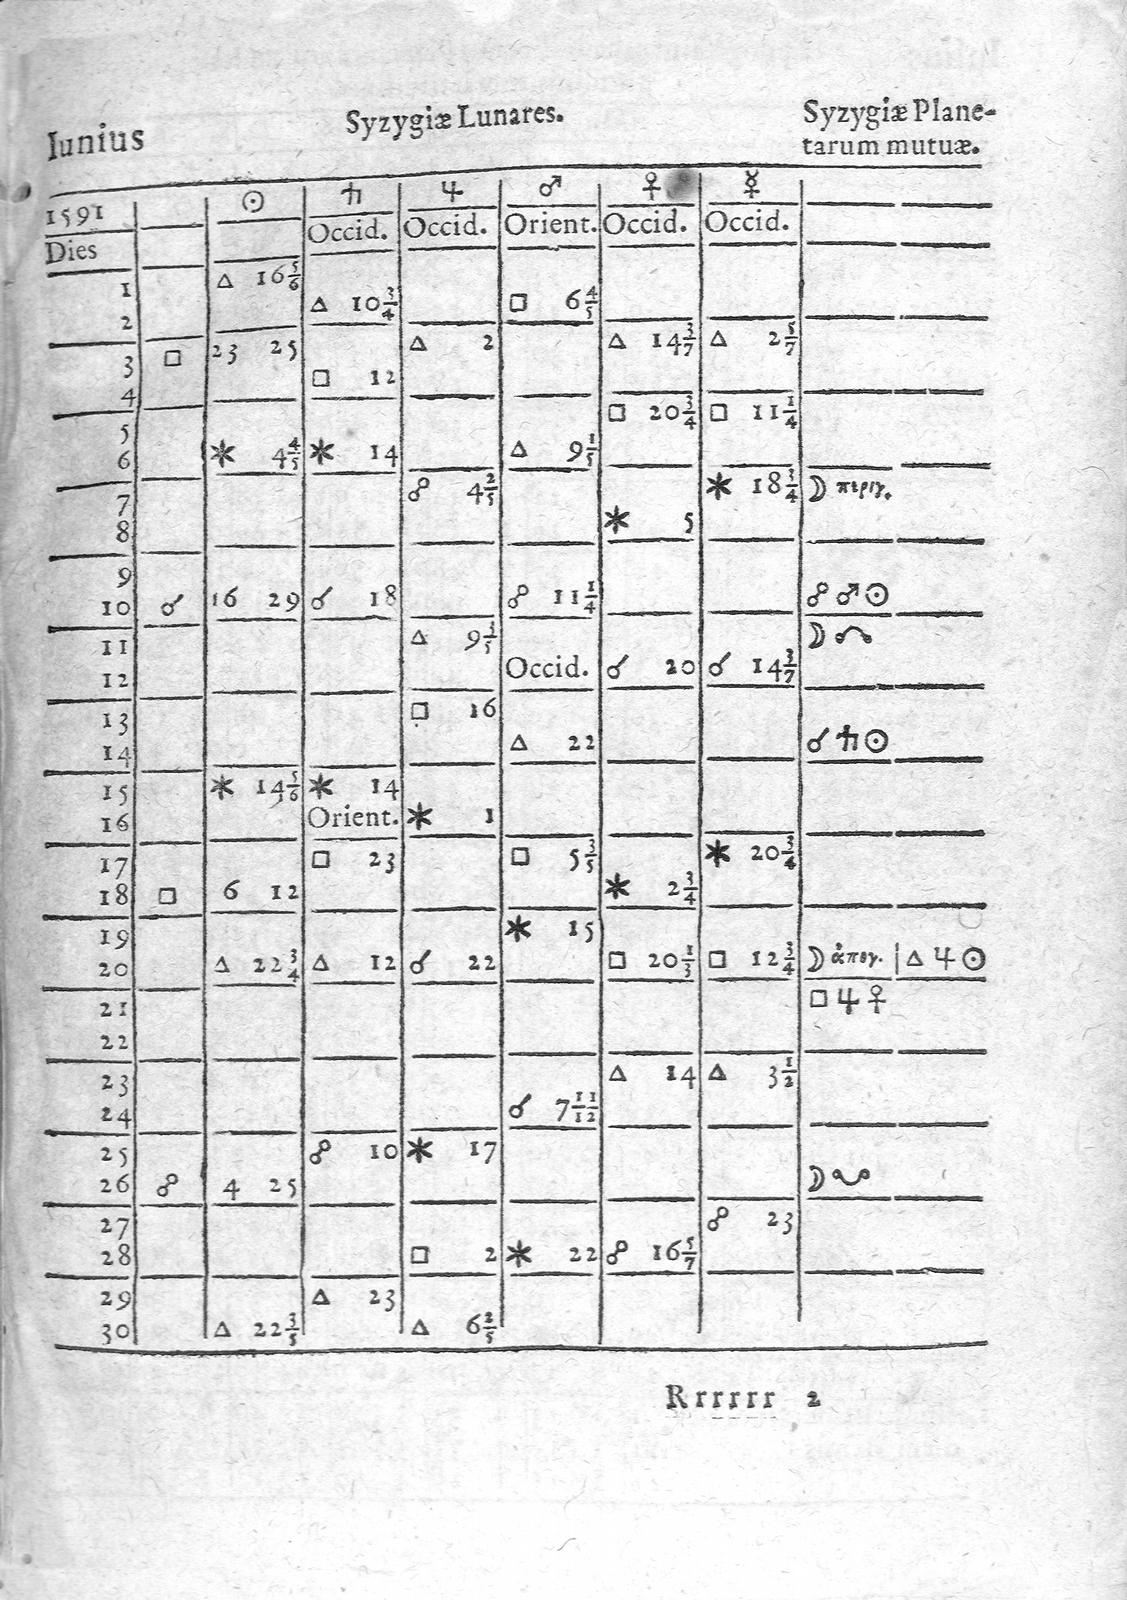 Iunius Syzygiæ Lunares. Syzygiæ Plane-
tarum mutuæ.
1591 ☉ ♄ ♃ ♂ ♀ ☿
Dies Occid. Occid. Orient. Occid. Occid.
1 △ 16 5/6 △ 10 3/4 □ 6 4/5
2
3 □ 23 25 △ 2 △ 14 3/7 △ 2 5/7
4 □ 12
5 □ 20 3/4 □ 11 1/4
6 ✶ 4 4/5 ✶ 14 △ 9 1/5
7 ☍ 4 2/5 ✶ 18 3/4 ☽ περιγ.
8 ✶ 5
9
10 ☌ 16 29 ☌ 18 ☍ 11 1/4 ☍ ♂ ☉
11 △ 9 3/5 ☽ ☊
12 Occid. ☌ 20 ☌ 14 3/7
13 □ 16
14 △ 22 ☌ ♄ ☉
15 ✶ 14 5/6 ✶ 14
16 Orient. ✶ 1
17 □ 23 □ 5 3/5 ✶ 20 3/4
18 □ 6 12 ✶ 2 3/4
19 ✶ 15
20 △ 22 3/4 △ 12 ☌ 22 □ 20 1/3 □ 12 3/4 ☽ ἀπογ. | △ ♃ ☉
21 □ ♃ ♀
22
23 △ 14 △ 3 1/2
24 ☌ 7 11/12
25 ☍ 10 ✶ 17
26 ☍ 4 25 ☽ ☋
27 ☍ 23
28 □ 2 ✶ 22 ☍ 16 5/7
29 △ 23
30 △ 22 3/5 △ 6 2/5
Rrrrrr 2